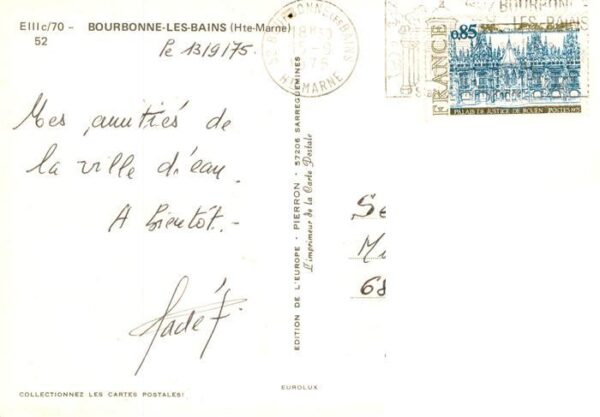 EIIIc/70 - BOURBONNE-LES-BAINS (Hte-Marne)
52
Le 13/9/75.
Mes amitiés de
la ville d'eau.
A bientôt.-
EDITION DE L'EUROPE - PIERRON - 57206 SARREGUEMINES
L'imprimeur de la Carte Postale
HTE MARNE
BOURBONNE
LES-BAINS
FRANCE
0,85
PALAIS DE JUSTICE DE ROUEN
POSTES 1975
Se
Mi
68
EUROLUX
COLLECTIONNEZ LES CARTES POSTALES!